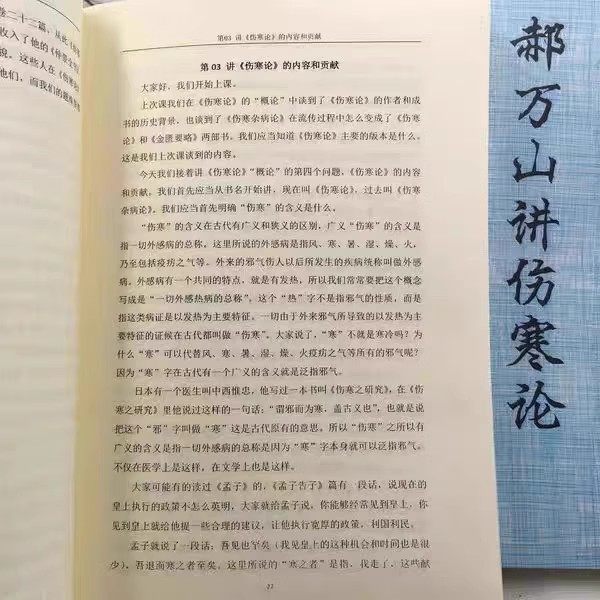 卷二十二篇，从此《伤
收入了他的《仲景全
说，这些人在《伤寒
他们，而我们的题
第03 讲《伤寒论》的内容和贡献
第 03 讲《伤寒论》的内容和贡献
大家好，我们开始上课。
上次课我们在《伤寒论》的“概论”中谈到了《伤寒论》的作者和成
书的历史背景，也谈到了《伤寒杂病论》在流传过程中怎么变成了《伤寒
论》和《金匮要略》两部书。我们应当知道《伤寒论》主要的版本是什么。
这是我们上次课谈到的内容。
今天我们接着讲《伤寒论》“概论”的第四个问题，《伤寒论》的内容
和贡献。我们首先应当从书名开始讲，现在叫《伤寒论》，过去叫《伤寒
杂病论》，我们应当首先明确“伤寒”的含义是什么。
“伤寒”的含义在古代有广义和狭义的区别，广义“伤寒”的含义是
指一切外感病的总称，这里所说的外感病是指风、寒、暑、湿、燥、火，
乃至包括疫疠之气等。外来的邪气伤人以后所发生的疾病统称叫做外感
病。外感病有一个共同的特点，就是有发热，所以我们常常要把这个概念
写成是“一切外感热病的总称”，这个“热”字不是指邪气的性质，而是
指这类病证是以发热为主要特征。一切由于外来邪气所导致的以发热为主
要特征的证候在古代都叫做“伤寒”。大家说了，“寒”不就是寒冷吗？为
什么“寒”可以代替风、寒、暑、湿、燥、火疫疠之气等所有的邪气呢？
因为“寒”字在古代有一个广义的含义就是泛指邪气。
日本有一个医生叫中西惟忠，他写过一本书叫《伤寒之研究》，在《伤
寒之研究》里他说过这样的一句话：“谓邪而为寒，盖古义也”，也就是说
把这个“邪”字叫做“寒”这是古代原有的意思。所以“伤寒”之所以有
广义的含义是指一切外感病的总称是因为“寒”字本身就可以泛指邪气。
不仅在医学上是这样，在文学上也是这样。
大家可能有的读过《孟子》的，《孟子告子》篇有一段话，说现在的
皇上执行的政策不怎么英明，大家就给孟子说，你能够经常见到皇上，你
见到皇上就给他提一些合理的建议，让他执行宽厚的政策，利国利民。
孟子就说了一段话：吾见也罕矣（我见皇上的这种机会和时间也是很
少），吾退而寒之者至矣。这里所说的“寒之者”是指，我走了，这些献
22
郝万山讲伤寒论